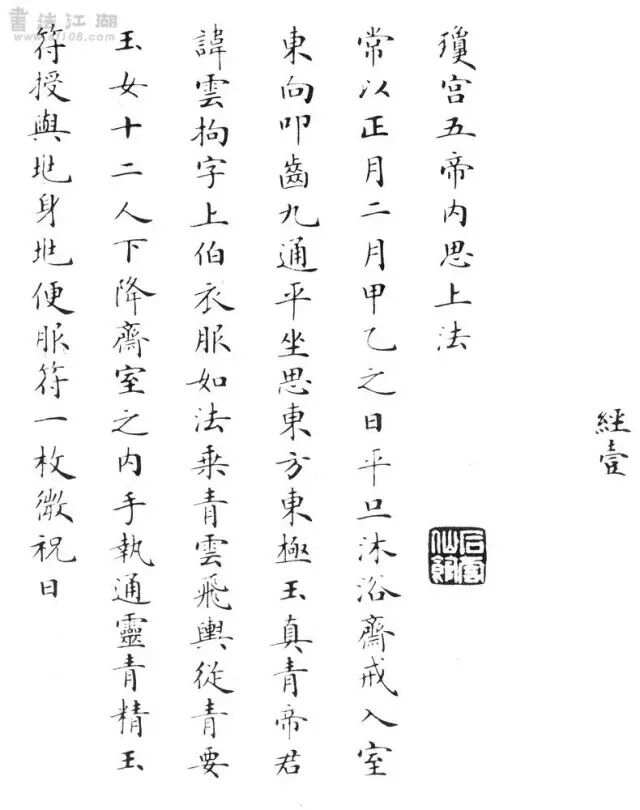 經壹
瓊宮五帝内思上法
常以正月二月甲乙之日平旦沐浴齋戒入室
東向叩齒九通平坐思東方東極玉真青帝君
諱雲拘字上伯衣服如法乘青雲飛輿從青要
玉女十二人下降齋室之内手執通靈青精玉
符授與地身地便服符一枚微祝曰
書法江湖